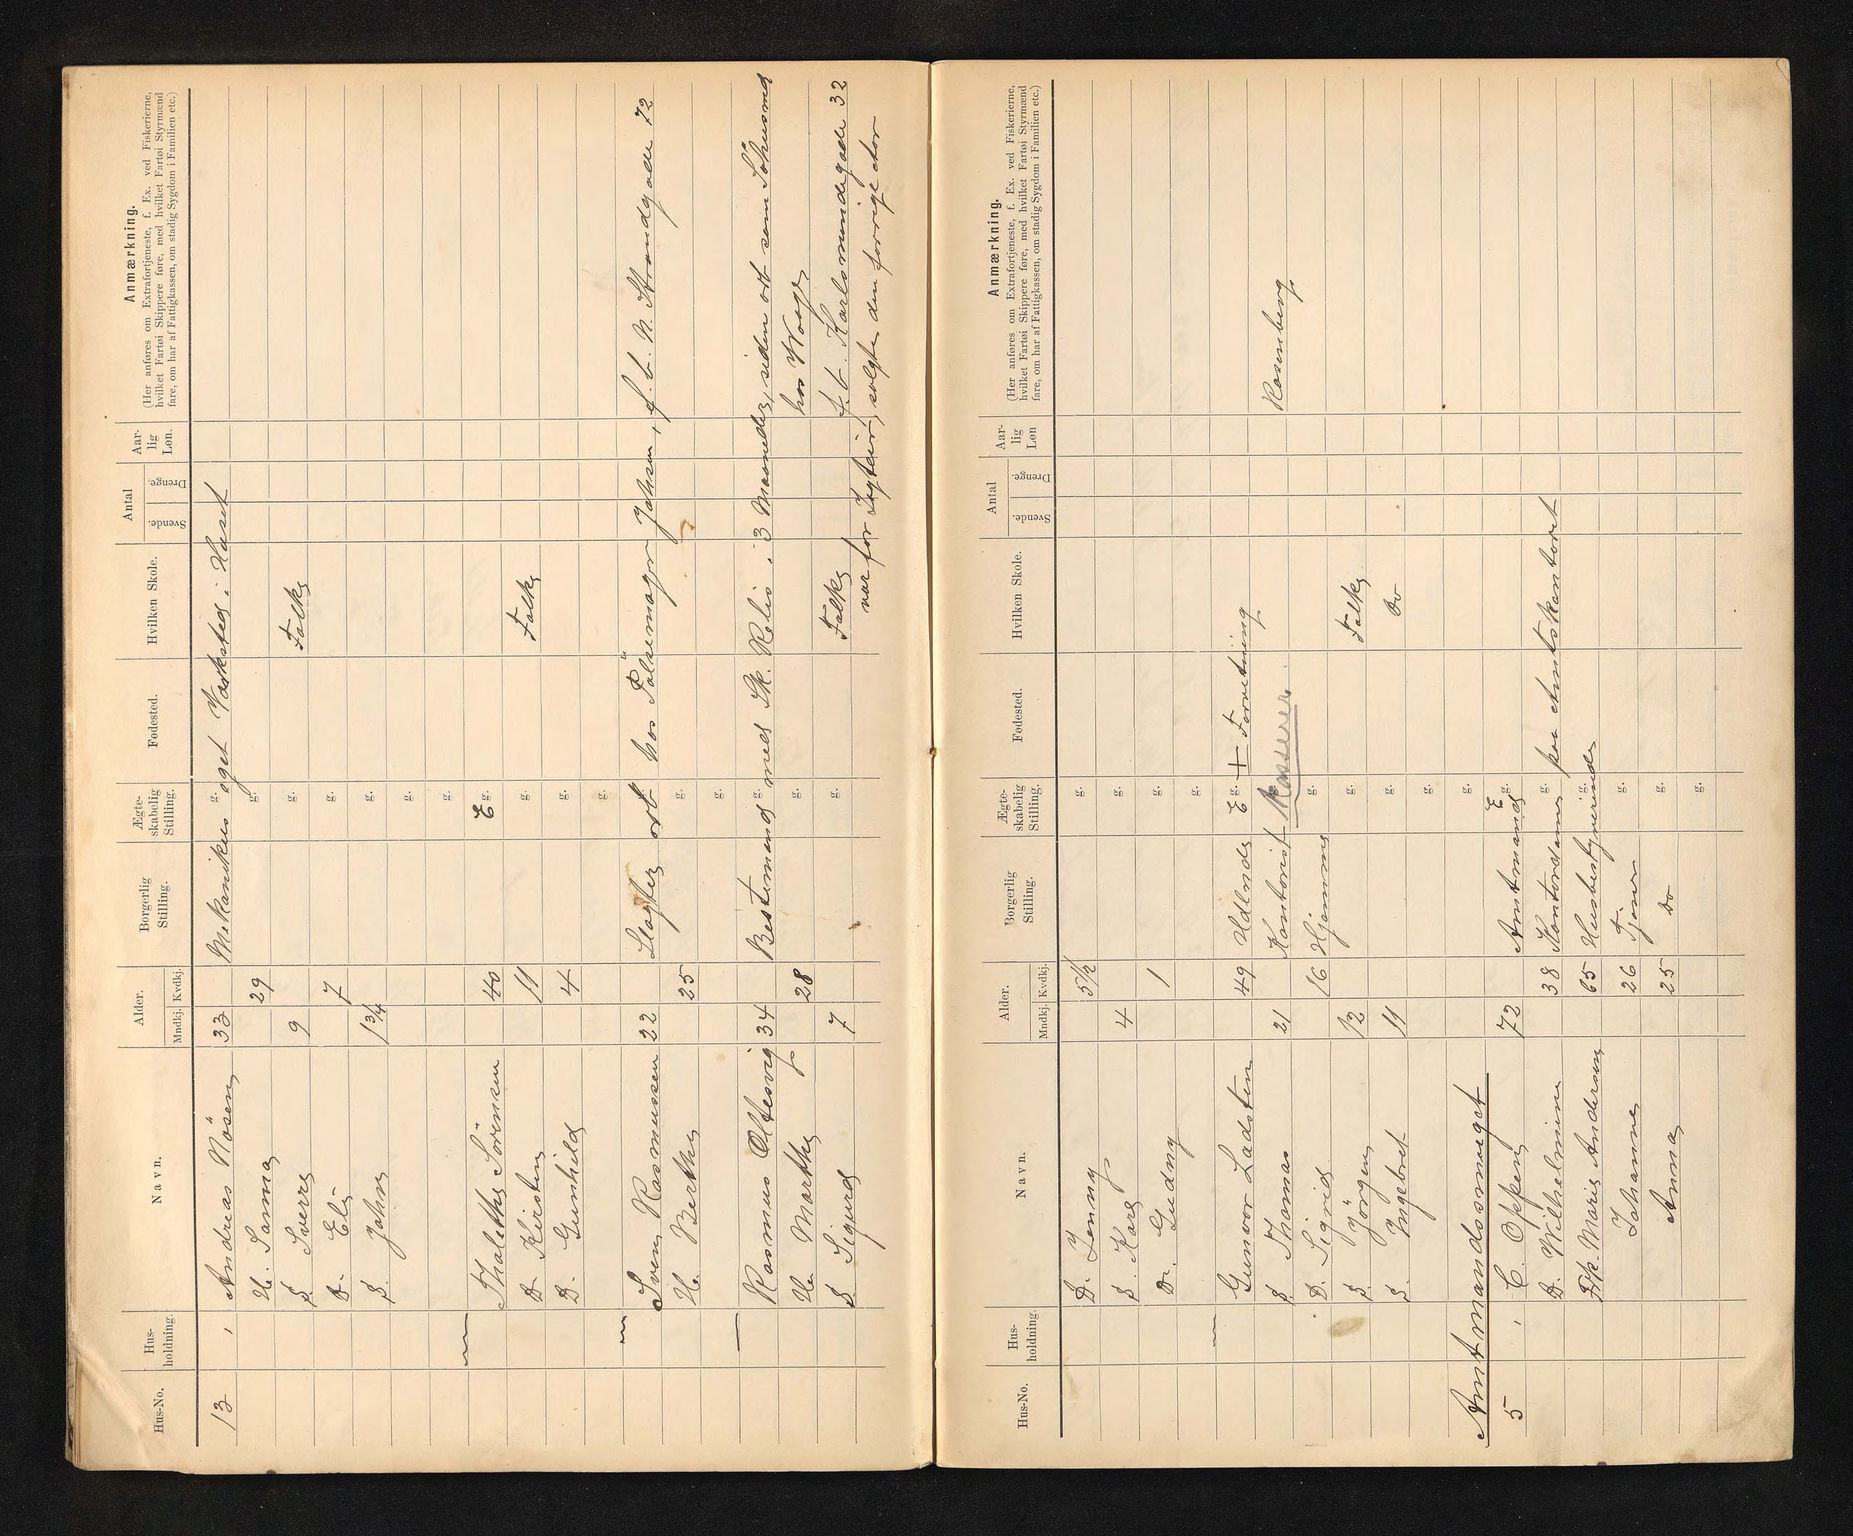 Hus-No. Hus-holdning. Navn. Alder. Mndkj. Kvdkj. Borgerlig Stilling. Ægte-skabelig Stilling. Fødested. Hvilken Skole. Antal Svende. Drenge. Aar-lig Løn. Anmærkning.
(Her anføres om Extrafortjeneste, f. Ex. ved Fiskerierne,
hvilket Fartøi Skippere føre, med hvilket Fartøi Styrmænd
fare, om har af Fattigkassen, om stadig Sygdom i Familien etc.)
13 Andreas Nösen 33 Mekanikus g. eget Værksted i Huset
H. Sanna 29 g.
S. Sverre 9 g. Folke
D. Eli 7 g.
S. John 1 3/4 g.
g.
g.
Thalethe Sörensen 40 E g.
D. Kirsten 11 g. Folke
D. Gunhild 4 g.
g.
Sven Rasmussen 22 Slagter g. arb hos Pölsemager Johnsen, f. b. N. Strandgade 72
H. Berthe 25 g.
g.
Rasmus Oltesvig 34 Bestemand g. med Sk. Rolis i 3 Maaneder, siden arb som Söhusmd
H. Marthe 28 g. hos Woge
S. Sigurd 7 Folke f. b. Karlsmindegade 32
var för Jagteier, solgte den forrige aar
Hus-No. Hus-holdning. Navn. Alder. Mndkj. Kvdkj. Borgerlig Stilling. Ægte-skabelig Stilling. Fødested. Hvilken Skole. Antal Svende. Drenge. Aar-lig Løn Anmærkning.
(Her anføres om Extrafortjeneste, f. Ex. ved Fiskerierne,
hvilket Fartøi Skippere føre, med hvilket Fartøi Styrmænd
fare, om har af Fattigkassen, om stadig Sygdom i Familien etc.)
D. Jenny 5 1/2 g.
S. Karl 4 g.
D. Gudny 1 g.
g.
Gunvor Ladsten 49 E g. + Forretning
S. Thomas 21 Kontorist g. Kasserer Rosenberg
D. Sigrid 16 Hjemme g.
S. Jörgen 12 g. Folke
S. Ingebret 11 g. do
g.
Amtmandssmuget g.
5 C. Oppen 72 Amtmand E g.
D. Wilhelmine 38 Kontordame g. paa Amtskontoret
Frk. Marie Andersen 65 Husbestyrerinde g.
Johanne 26 Tjener g.
Anna 25 do g.
g.